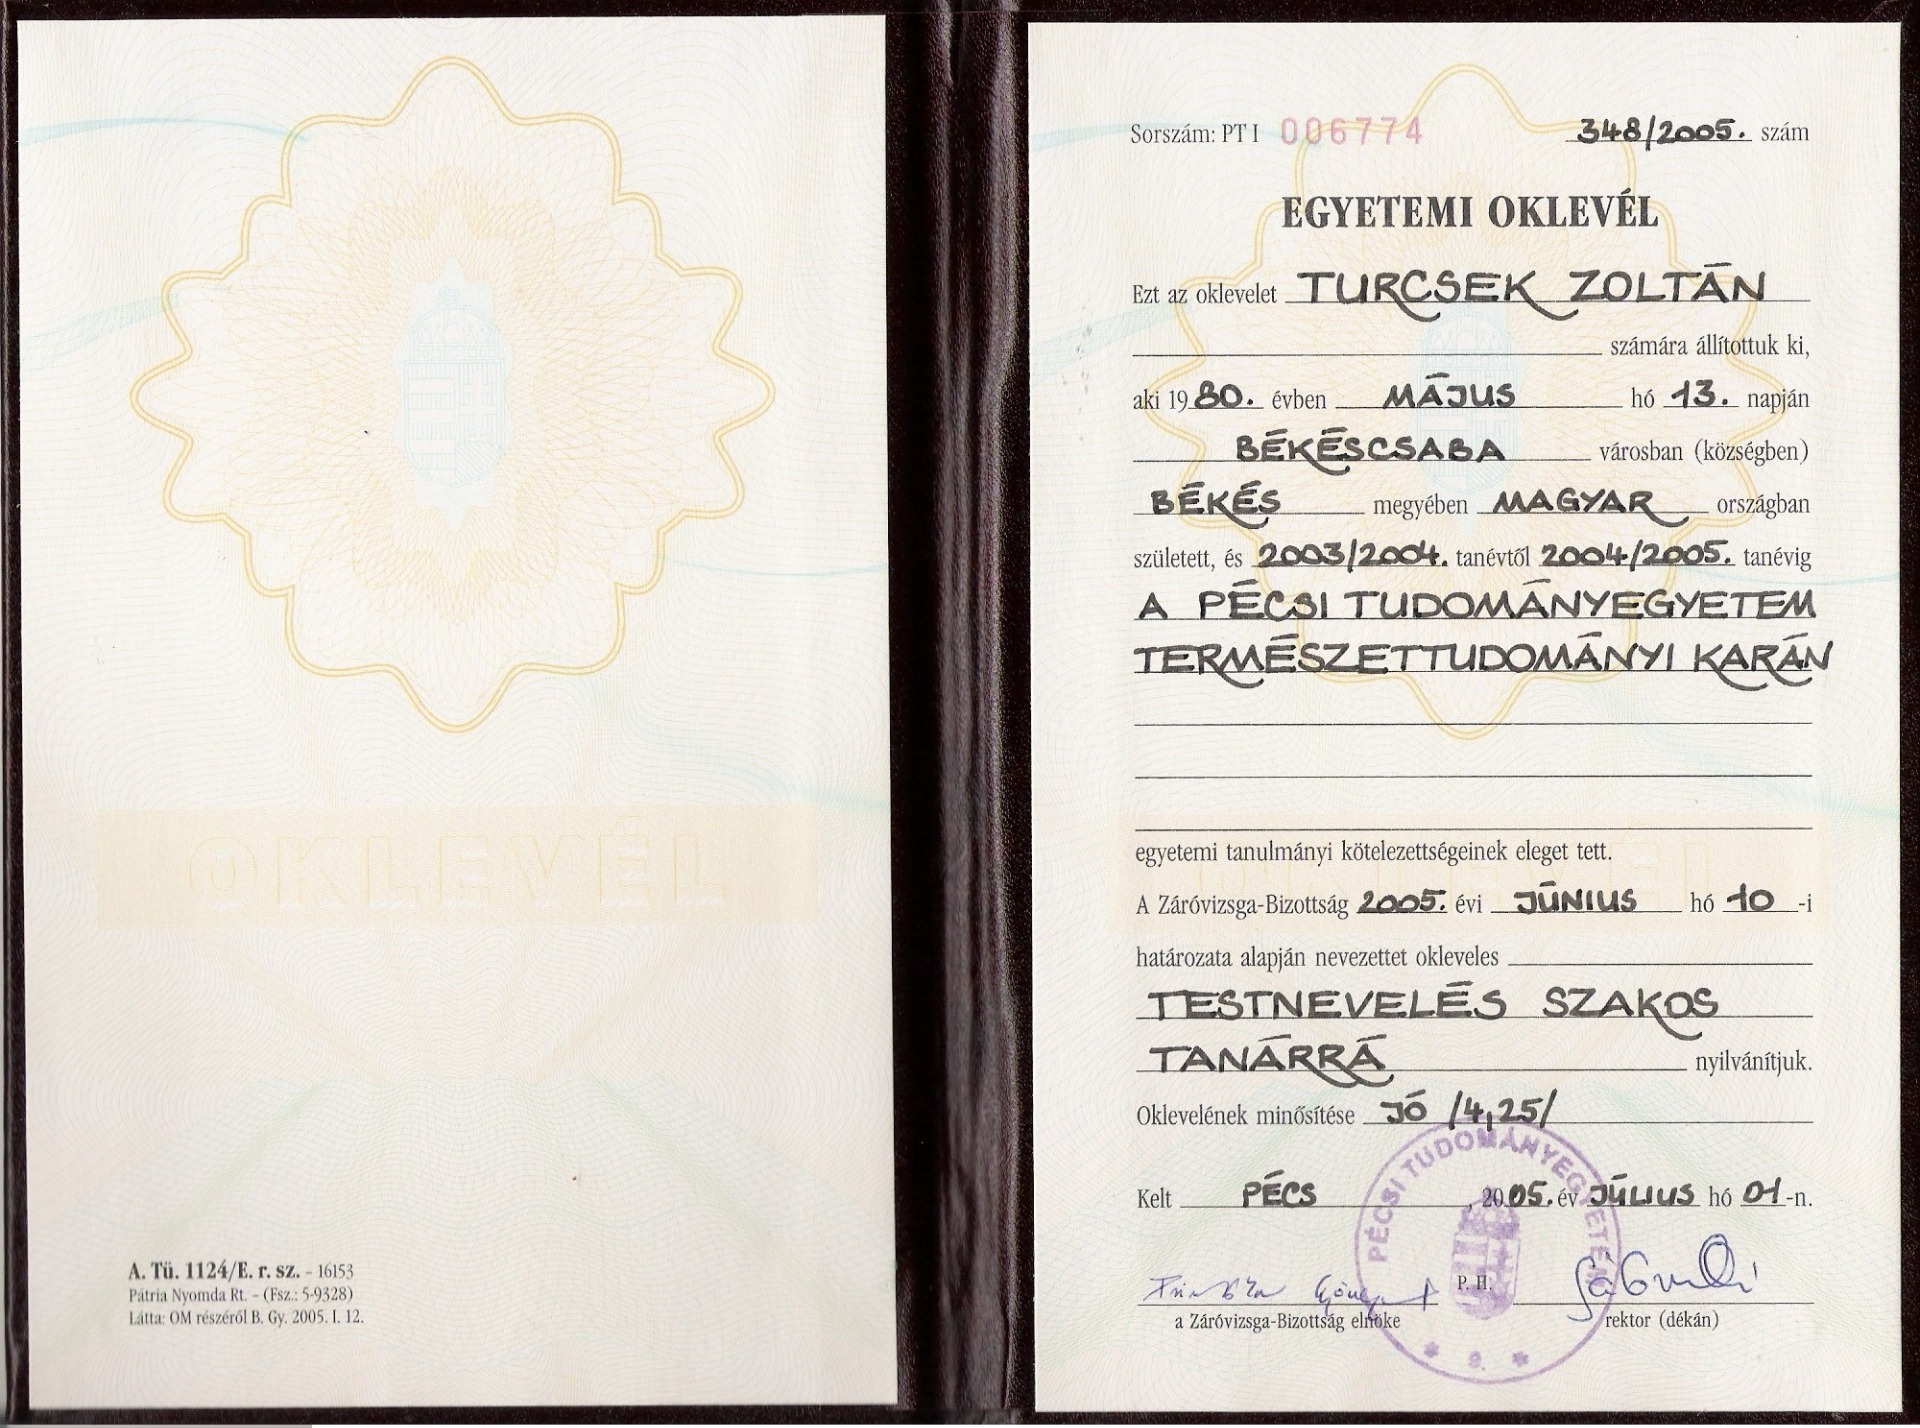 OKLEVÉL
A. Tü. 1124/E. r. sz. - 16153
Pátria Nyomda Rt. - (Fsz.: 5-9328)
Látta: OM részéről B. Gy. 2005. I. 12.
Sorszám: PT I 006774 348/2005. szám
EGYETEMI OKLEVÉL
Ezt az oklevelet TURCSEK ZOLTÁN
számára állítottuk ki,
aki 1980. évben MÁJUS hó 13. napján
BÉKÉSCSABA városban (községben)
BÉKÉS megyében MAGYAR országban
született, és 2003/2004. tanévtől 2004/2005. tanévig
A PÉCSI TUDOMÁNYEGYETEM
TERMÉSZETTUDOMÁNYI KARÁN
egyetemi tanulmányi kötelezettségeinek eleget tett.
A Záróvizsga-Bizottság 2005. évi JÚNIUS hó 10 -i
határozata alapján nevezettet okleveles
TESTNEVELÉS SZAKOS
TANÁRRÁ nyilvánítjuk.
Oklevelének minősítése JÓ /4,25/
Kelt PÉCS, 2005. év JÚLIUS hó 01-n.
P. H.
a Záróvizsga-Bizottság elnöke rektor (dékán)
PÉCSI TUDOMÁNYEGYETEM
* 9. *